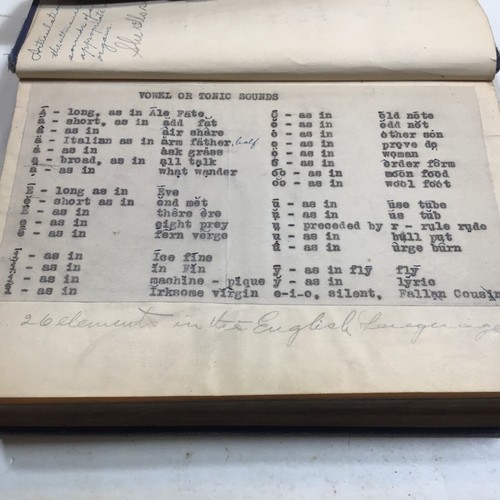 Articulate
the utterance
sounds of
appropriate
organ.
VOWEL OR TONIC SOUNDS
ā - long, as in Āle Fate
ă - short, as in ădd făt
â - as in âir shâre
ä - Italian as in ärm fäther, half
ȧ - as in ȧsk grȧss
a̤ - broad, as in a̤ll ta̤lk
ạ - as in whạt wạnder
ē - long as in Ēve
ĕ - short as in ĕnd mĕt
ê - as in thêre êre
e̱ - as in e̱ight pre̱y
ẽ - as in fẽrn vẽrge
ī - as in Īce fīne
ĭ - as in ĭn Fĭn
ï - as in machïne - pïque
ĩ - as in Ĩrksome vĩrgin
ō - as in ōld nōte
ŏ - as in ŏdd nŏt
ȯ - as in ȯther sȯn
o̤ - as in pro̤ve do̤
ọ - as in wọman
ô - as in ôrder fôrm
o͞o - as in mo͞on fo͞od
o͝o - as in wo͝ol fo͝ot
ū - as in ūse tūbe
ŭ - as in ŭs tŭb
ṳ - preceded by r - rṳle rṳde
ụ - as in bụll pụt
û - as in ûrge bûrn
ȳ - as in flȳ flȳ
y̆ - as in ly̆ric
e-i-o, silent, Fallen Cousin
26 elements in the English Language